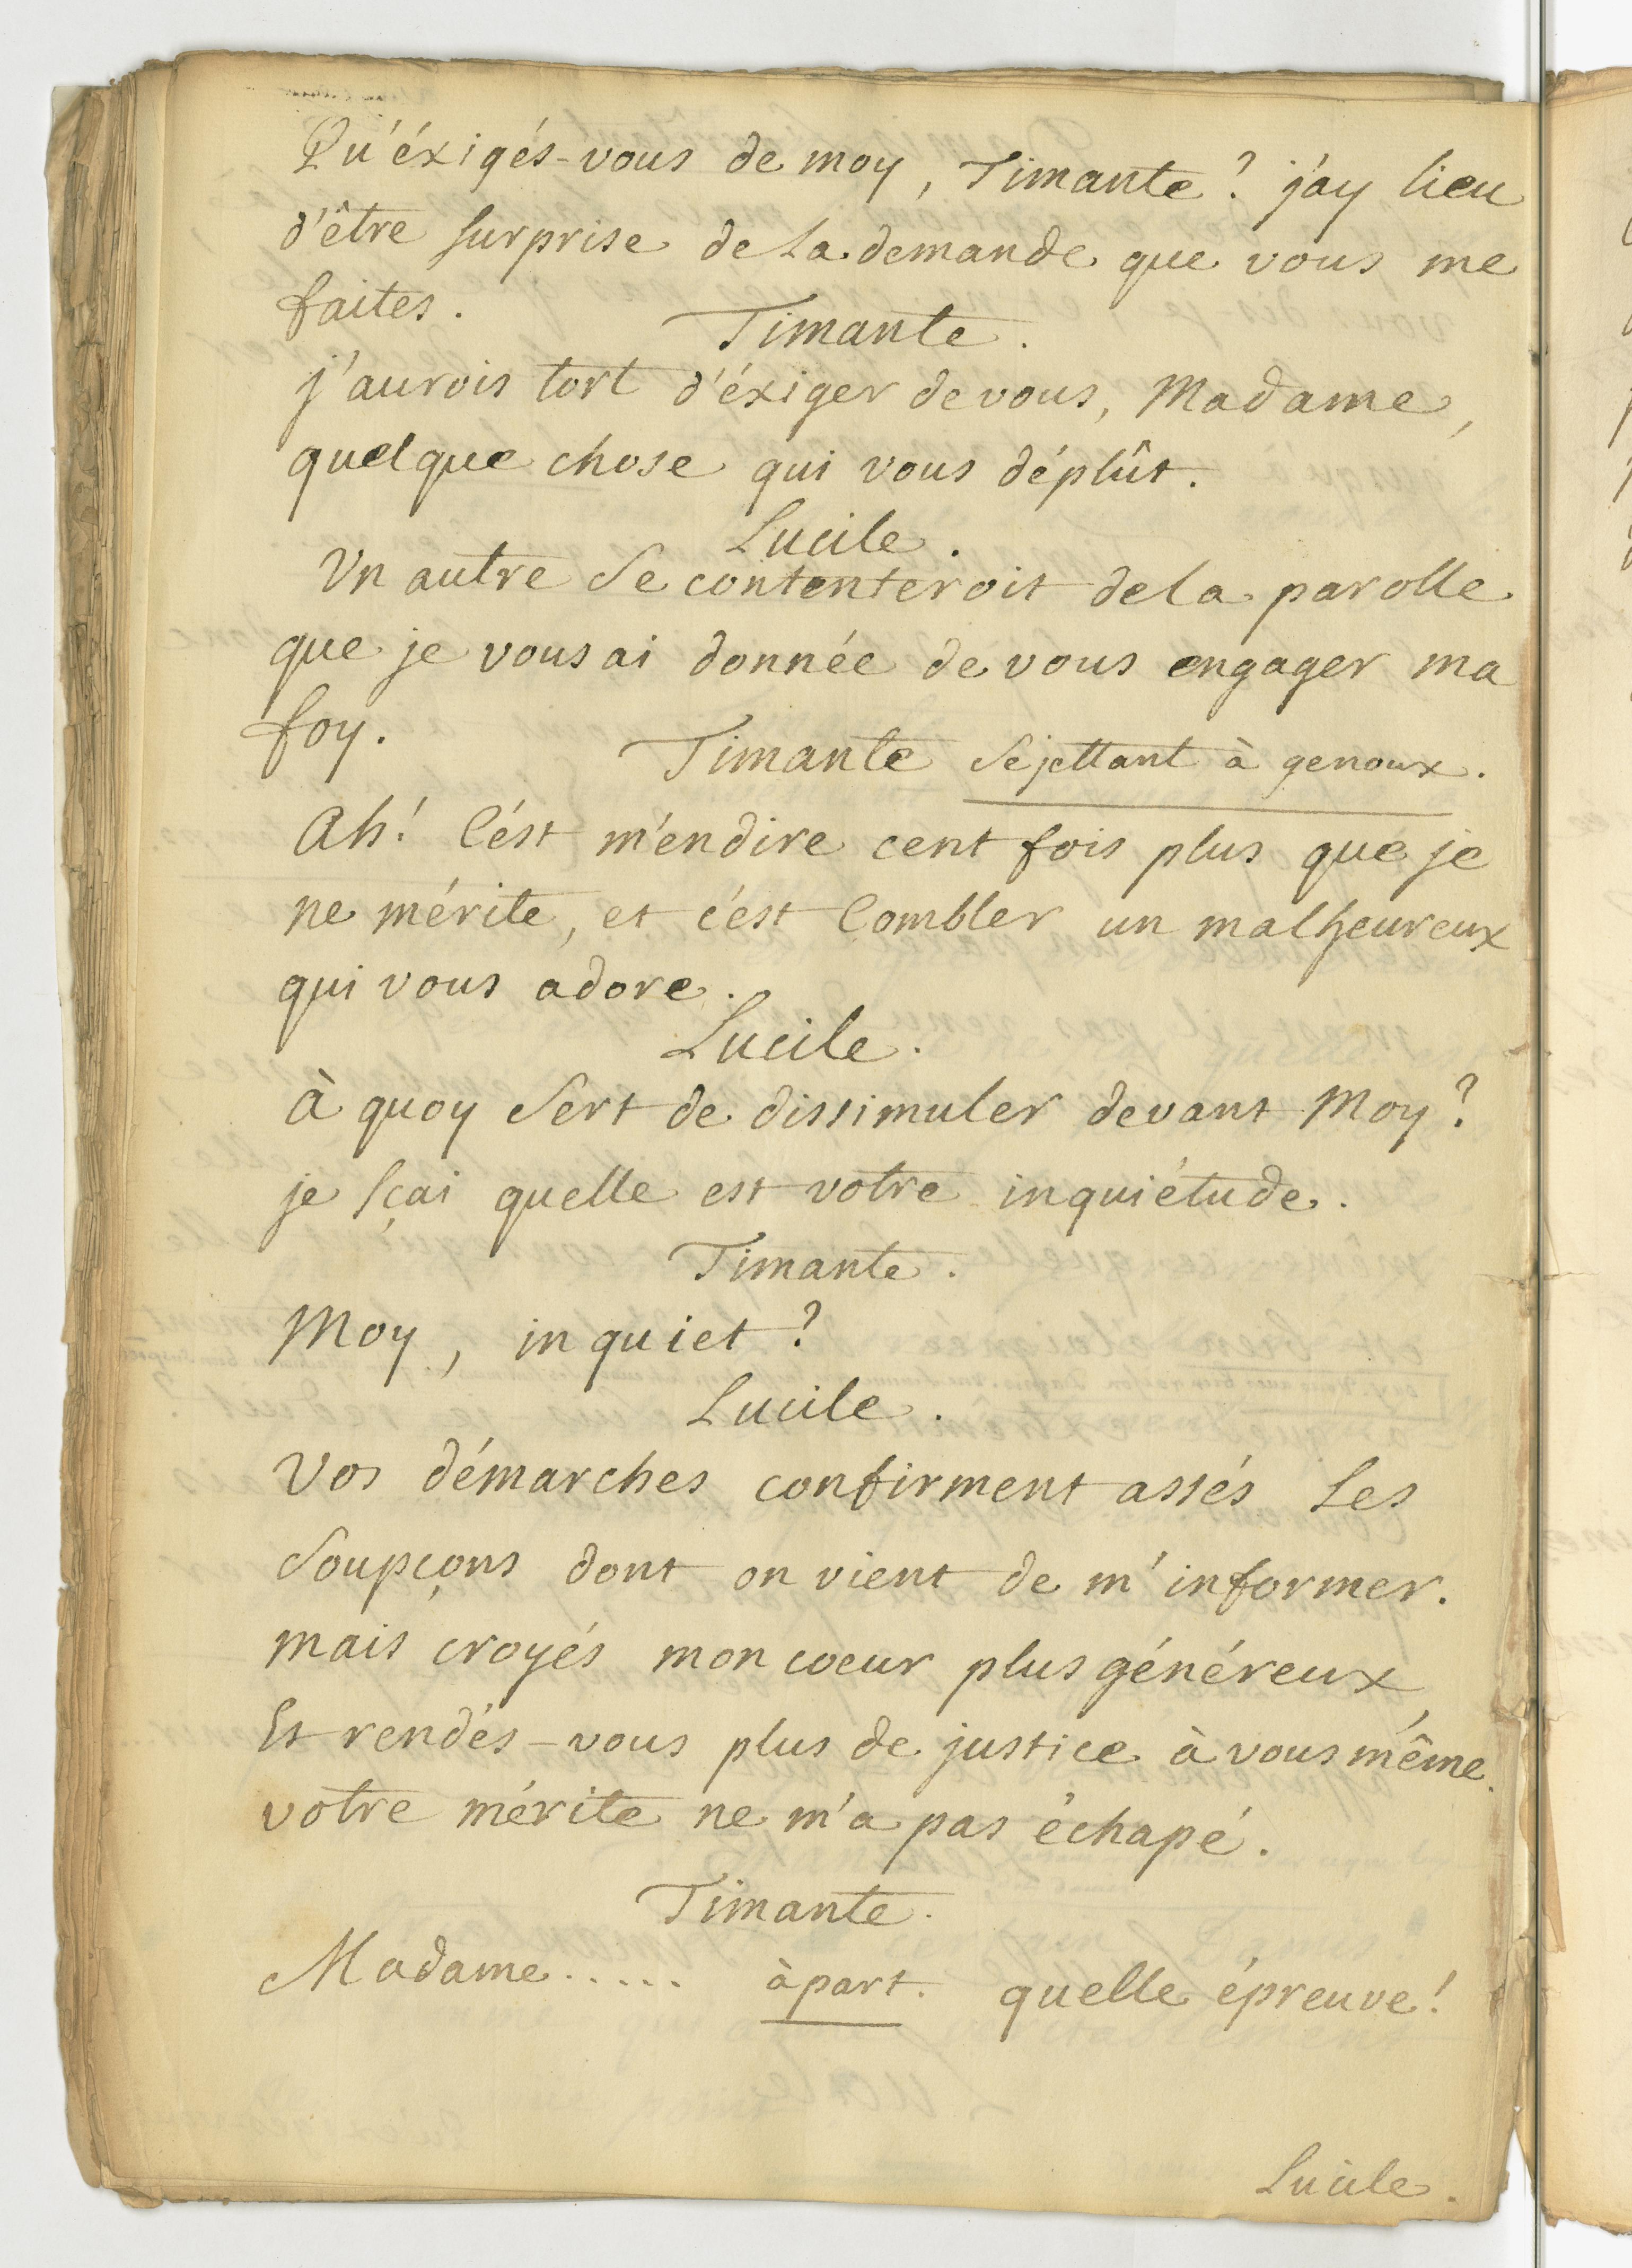 Qu'éxigés-vous de moy, Timante? j'ay lieu
d'être surprise de la demande que vous me
faites.
Timante.
j'aurois tort d'éxiger de vous, Madame,
quelque chose qui vous déplût.
Lucile.
Un autre se contenteroit de la parolle
que je vous ai donnée de vous engager ma
foy.
Timante se jettant à genoux.
Ah! C'ést m'en dire cent fois plus que je
ne mérite, et c'ést Combler un malheureux
qui vous adore.
Lucile.
à quoy sert de dissimuler devant Moy?
je sçai quelle est votre inquiétude.
Timante.
Moy, inquiet?
Lucile.
Vos démarches confirment assés Les
soupçons dont on vient de m'informer.
mais croyés mon coeur plus généreux,
Et rendés-vous plus de justice à vous même.
votre mérite ne m'a pas échapé.
Timante.
Madame..... à part. quelle épreuve!
Lucile.